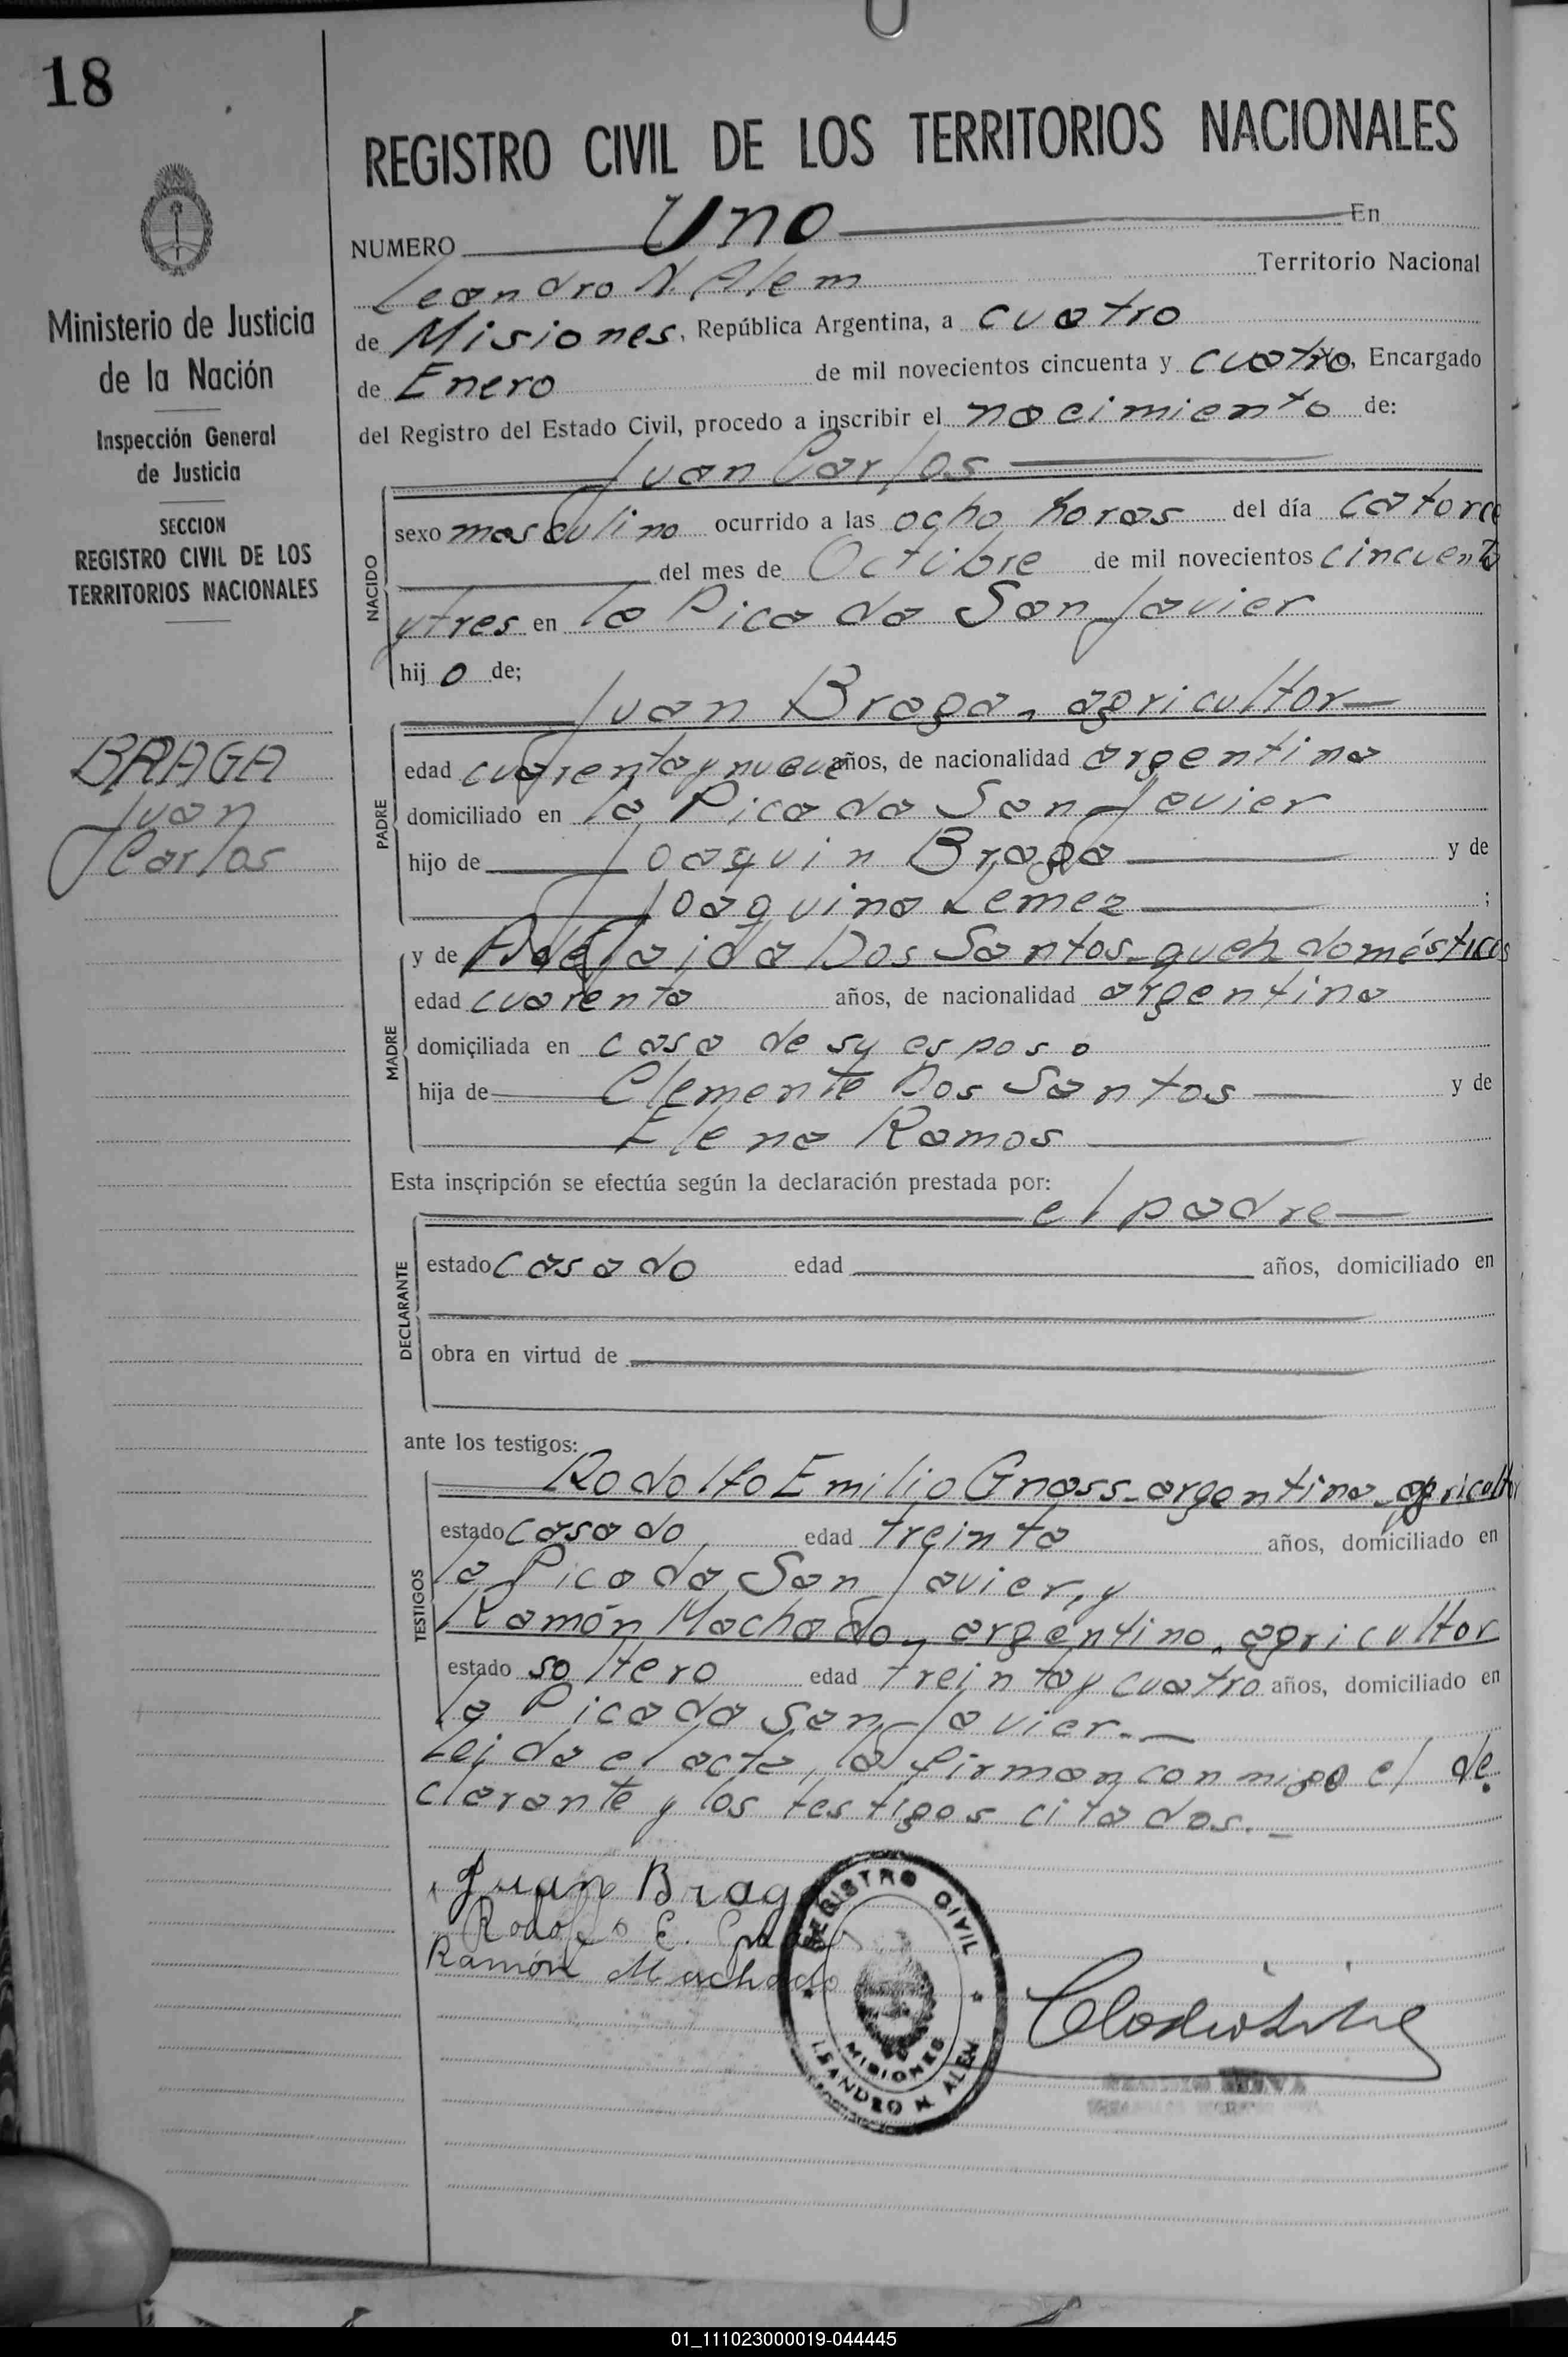 18
REGISTRO CIVIL DE LOS TERRITORIOS NACIONALES
Ministerio de Justicia
de la Nación
Inspección General
de Justicia
SECCION
REGISTRO CIVIL DE LOS
TERRITORIOS NACIONALES
BRAGA
Juan
Carlos
NUMERO Uno En
Leandro N. Alem Territorio Nacional
de Misiones, República Argentina, a cuatro
de Enero de mil novecientos cincuenta y cuatro, Encargado
del Registro del Estado Civil, procedo a inscribir el nacimiento de:
Juan Carlos
NACIDO
sexo masculino ocurrido a las ocho horas del día catorce
del mes de Octubre de mil novecientos cincuenta
y tres en la Picada San Javier
hij o de;
Juan Braga, agricultor
PADRE
edad cuarenta y nueve años, de nacionalidad argentina
domiciliado en la Picada San Javier
hijo de Joaquin Braga y de
Joaquina Lemez ;
MADRE
y de Adelaida Dos Santos - queh. domésticos
edad cuarenta años, de nacionalidad argentina
domiciliada en casa de su esposo
hija de Clemente Dos Santos y de
Elena Ramos
Esta inscripción se efectúa según la declaración prestada por:
el padre
DECLARANTE
estado casado edad años, domiciliado en
obra en virtud de
ante los testigos:
TESTIGOS
Rodolfo Emilio Gnass - argentino - agricultor
estado casado edad treinta años, domiciliado en
la Picada San Javier, y
Ramón Machado, argentino, agricultor
estado soltero edad treinta y cuatro años, domiciliado en
la Picada San Javier.-
Leida el acta, la firman conmigo el de
clarante y los testigos citados.-
Juan Braga
Rodolfo E.
Ramón Machado
REGISTRO CIVIL
MISIONES
LEANDRO N ALEM
01_111023000019-044445